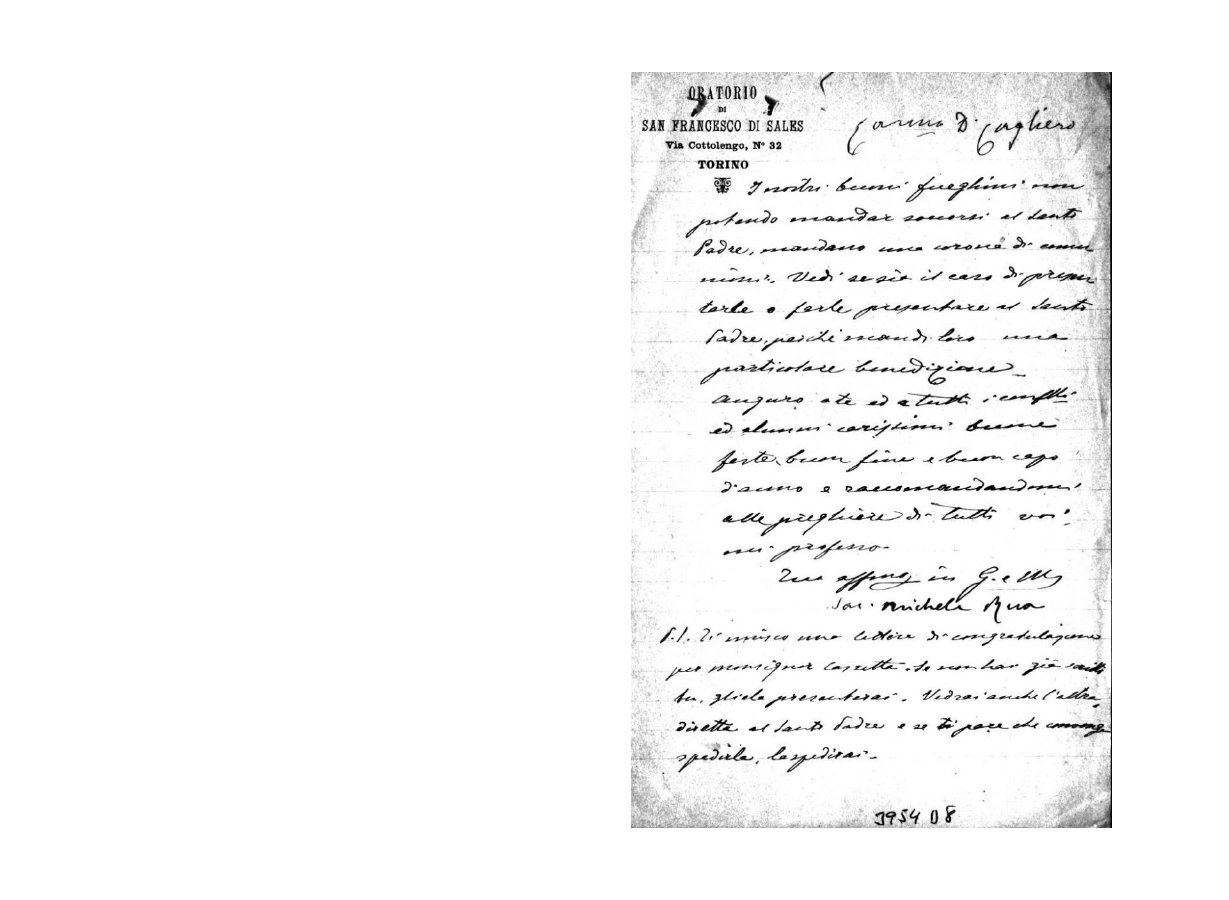 ORATORIO
DI
SAN FRANCESCO DI SALES
Via Cottolengo, N° 32
TORINO
Car.mo D. Cagliero
I nostri buoni fueghini non
potendo mandar soccorsi al Santo
Padre, mandano una corona di comu
nioni. Vedi se sia il caso di presen
tarla o farla presentare al Santo
Padre, perché mandi loro una
particolare benedizione_
Auguro a te ed a tutti i conflli
ed alunni carissimi buone
feste, buon fine e buon capo
d'anno e raccomandandomi
alle preghiere di tutti voi
mi professo
Tuo affmo in G. e M.
Sac. Michele Rua
P.S. Ti unisco una lettera di congratulazione
per monsignor Cassetta. Se non hai già scritto
tu, gliela presenterai. Vedrai anche l'altra
diretta al Santo Padre e se ti pare che convenga
spedirla, la spedirai_
3954 D8